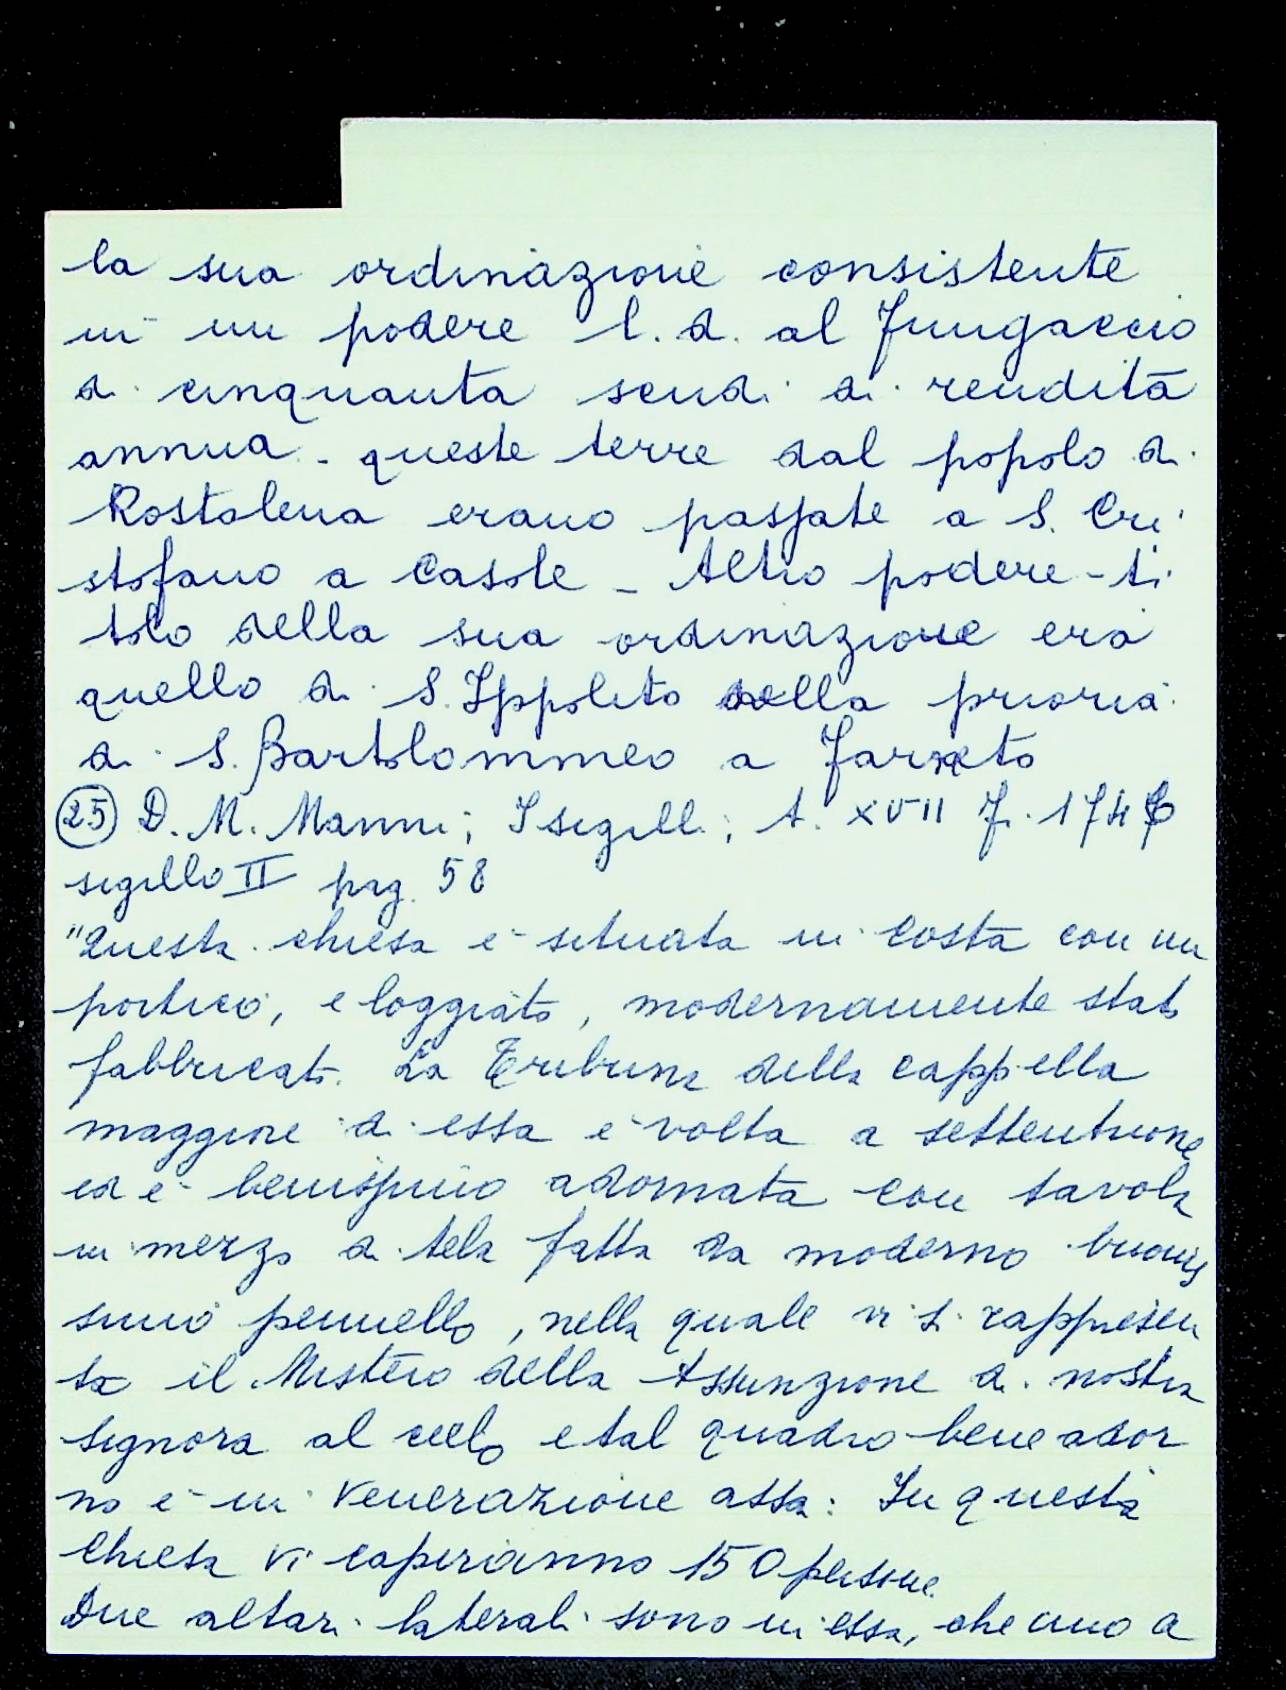 la sua ordinazione consistente
in un podere l. d. al Fungaccio
di cinquanta scudi di rendita
annua - queste terre dal popolo di
Rostolena erano passate a S. Cri
stofano a Casole - Altro podere-ti
tolo della sua ordinazione era
quello di S. Ippolito della prioria
di S. Bartolommeo a Farneto
(25) D. M. Manni; I sigilli; t. XVII Fi. 174
sigillo II pag. 58
"Questa chiesa è situata in costa con un
portico, e loggiato, modernamente stato
fabbricato. La Tribuna della cappella
maggiore di essa è volta a settentrione
ed è benissimo adornata con tavola
in mezzo di tela fatta da moderno buonis
simo pennello, nella quale vi si rappresen
ta il Mistero della Assunzione di nostra
signora al cielo e tal quadro bene ador
no è in venerazione assai In questa
Chiesa vi caperanno 150 persone.
Due altari laterali sono in essa, che uno a